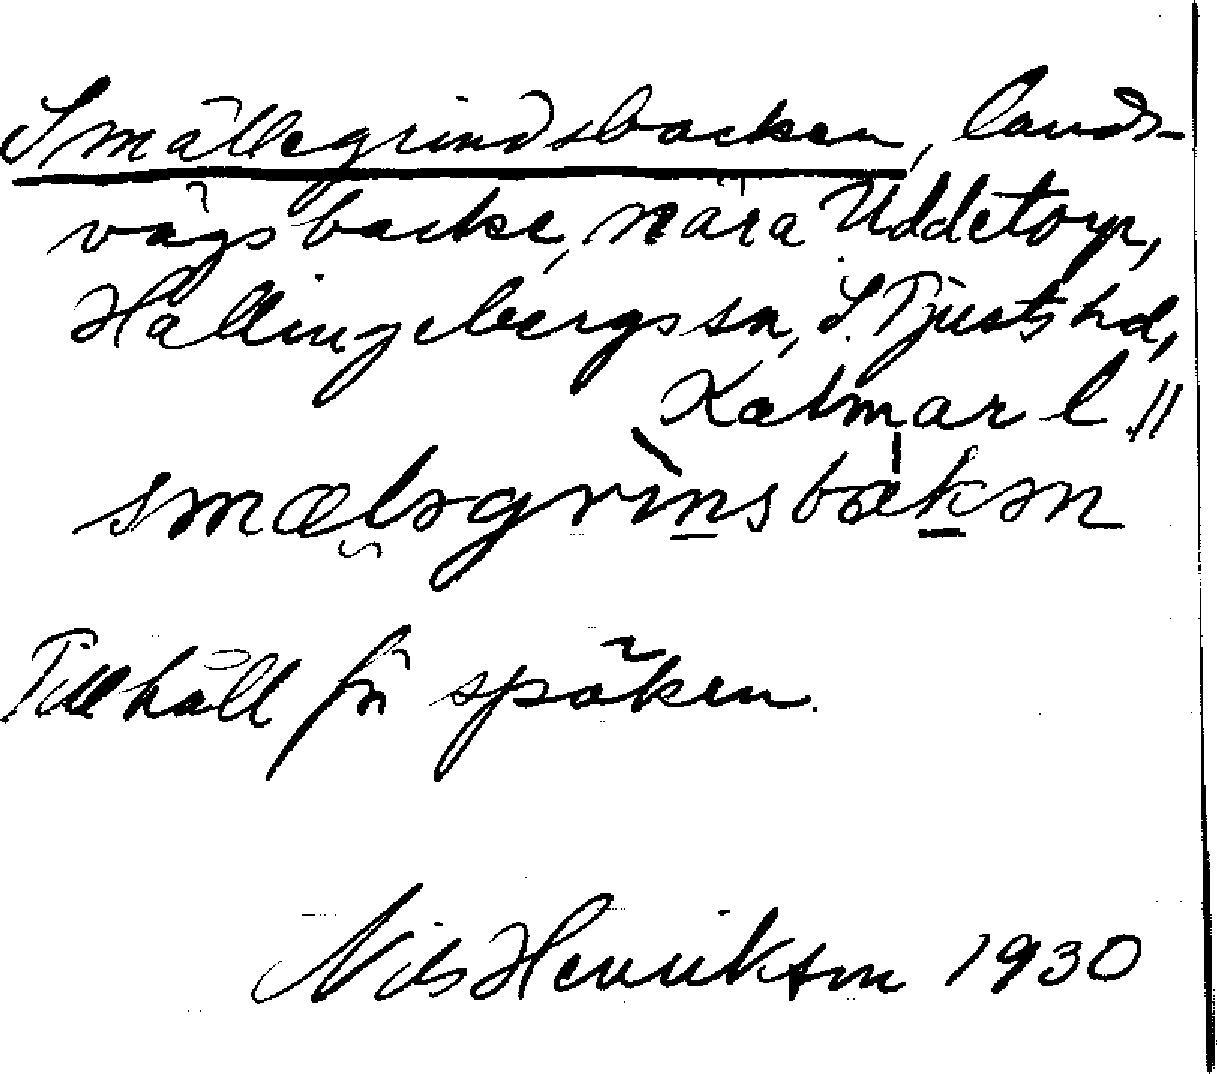 Smällegrindsbacken, lands-
vägsbacke, nära Uddetorp,
Hallingebergs sn, S. Tjusts hd,
Kalmar l.
smælǝgrìnsbàkǝn
Tillhåll för spöken.
Nils Henrikson 1930